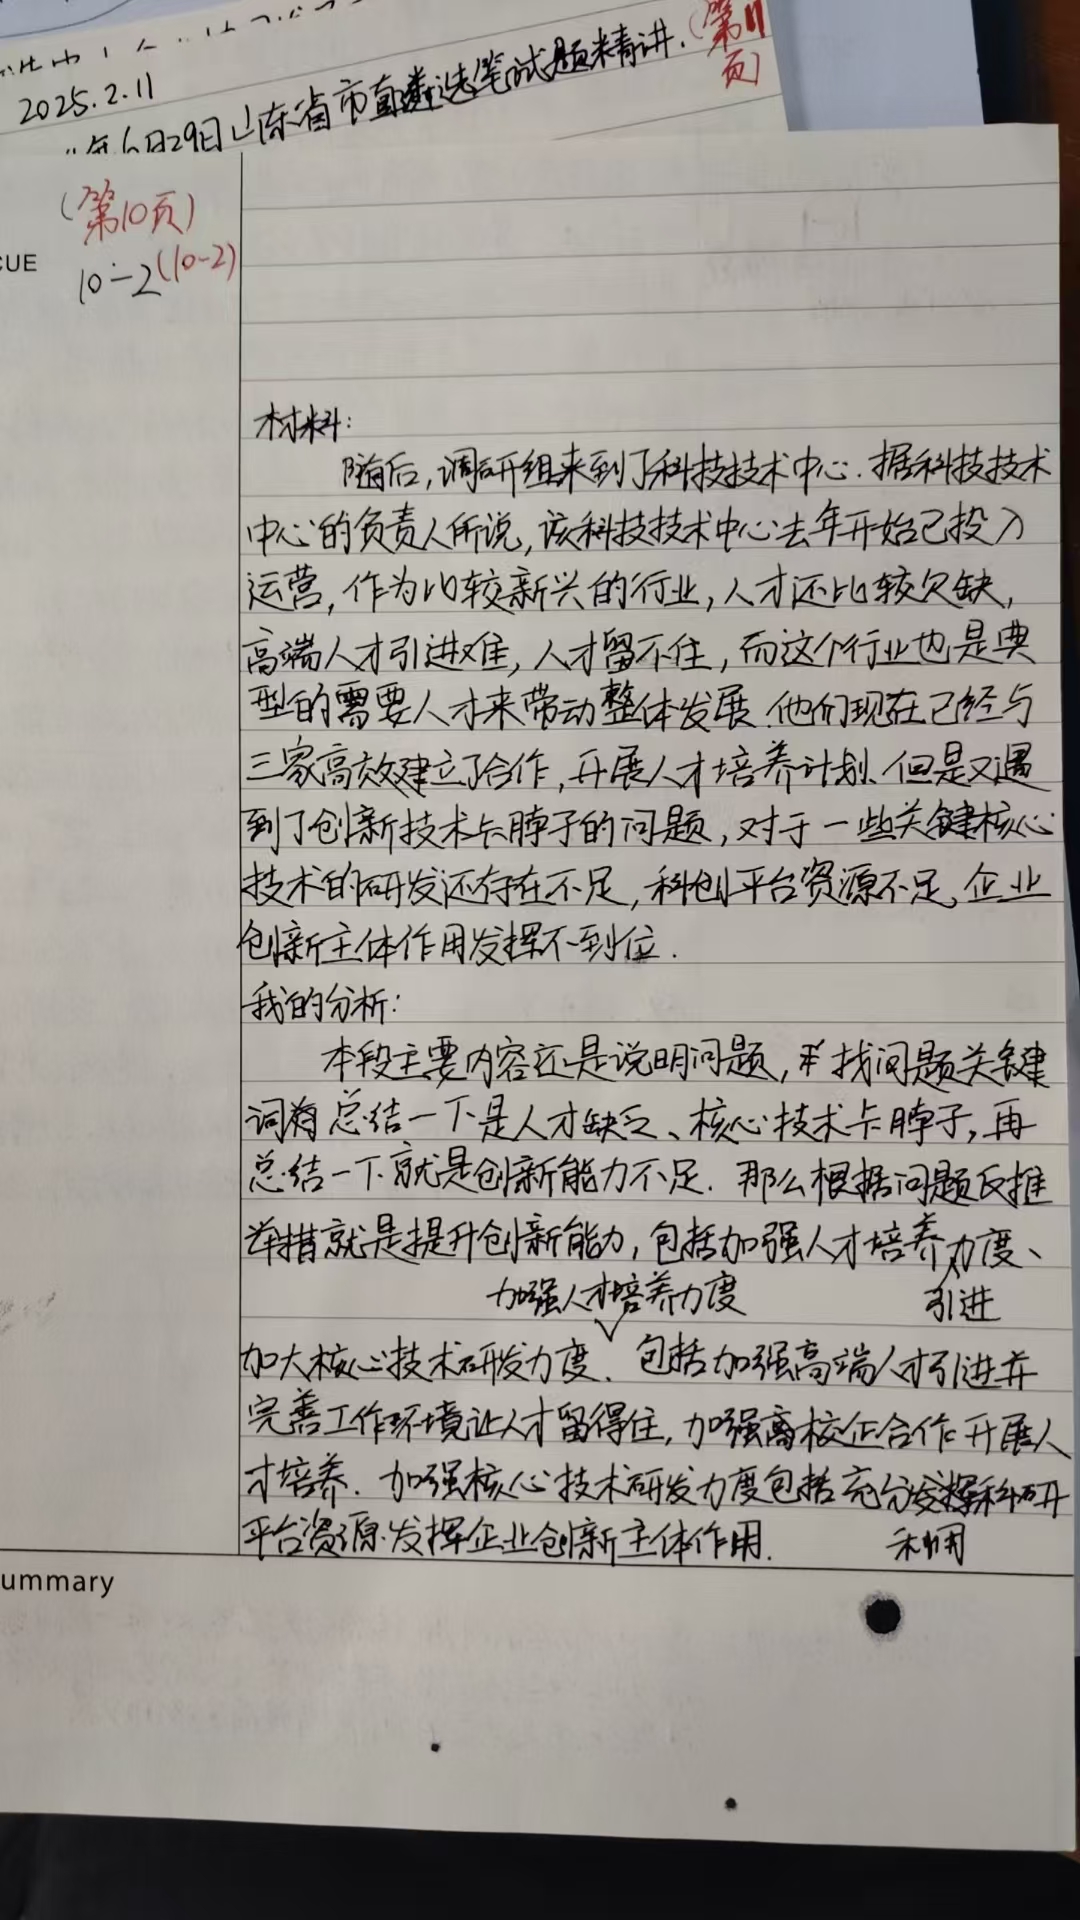 2025.2.11
年6月29日山东省市直遴选笔试题精讲.(第11页)
(第10页)
CUE
10-2(10-2)
材料:
随后,调研组来到了科技技术中心.据科技技术
中心的负责人所说,该科技技术中心去年开始已投入
运营,作为比较新兴的行业,人才还比较欠缺,
高端人才引进难,人才留不住,而这个行业也是典
型的需要人才来带动整体发展.他们现在已经与
三家高效建立了合作,开展人才培养计划.但是又遇
到了创新技术卡脖子的问题,对于一些关键核心
技术的研发还存在不足,科创平台资源不足,企业
创新主体作用发挥不到位.
我的分析:
本段主要内容还是说明问题,找问题关键
词 总结一下是人才缺乏、核心技术卡脖子,再
总结一下就是创新能力不足.那么根据问题反推
举措就是提升创新能力,包括加强人才培养力度、
加强人才培养力度
引进
加大核心技术研发力度.包括加强高端人才引进并
完善工作环境让人才留得住,加强高校企合作开展人
才培养.加强核心技术研发力度包括充分发挥科研
平台资源.发挥企业创新主体作用.
利用
ummary